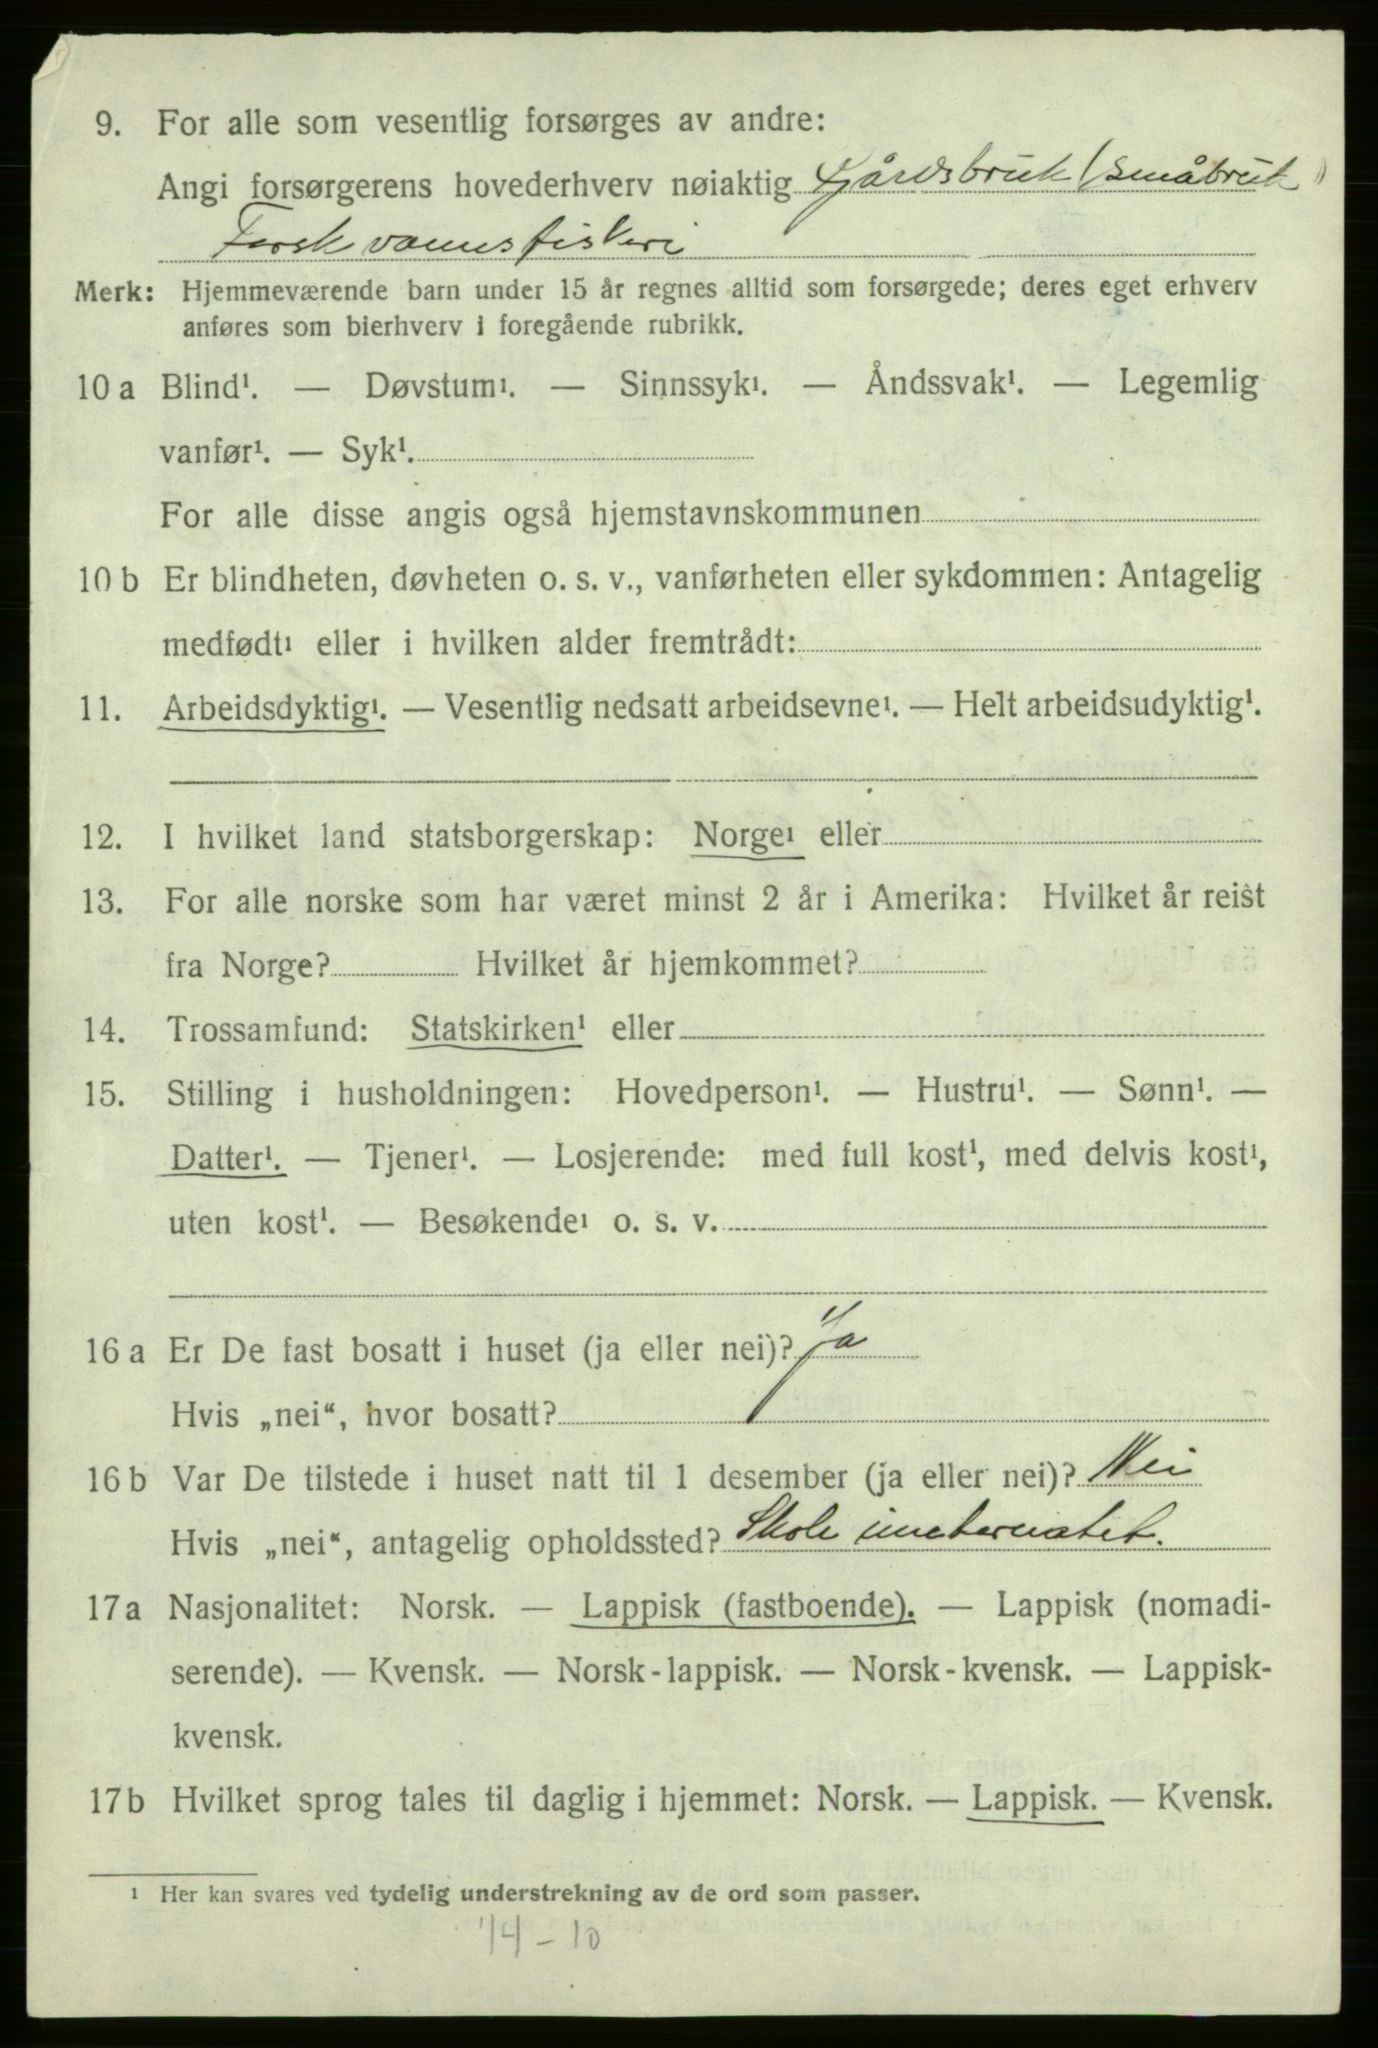 9. For alle som vesentlig forsørges av andre:
Angi forsørgerens hovederhverv nøiaktig Gårdsbruk (småbruk)
Ferskvannsfiskeri
Merk: Hjemmeværende barn under 15 år regnes alltid som forsørgede; deres eget erhverv
anføres som bierhverv i foregående rubrikk.
10 a Blind¹. — Døvstum¹. — Sinnssyk¹. — Åndssvak¹. — Legemlig
vanfør¹. — Syk¹.
For alle disse angis også hjemstavnskommunen
10 b Er blindheten, døvheten o. s. v., vanførheten eller sykdommen: Antagelig
medfødt¹ eller i hvilken alder fremtrådt:
11. Arbeidsdyktig¹. — Vesentlig nedsatt arbeidsevne¹. — Helt arbeidsudyktig¹.
12. I hvilket land statsborgerskap: Norge¹ eller
13. For alle norske som har været minst 2 år i Amerika: Hvilket år reist
fra Norge? Hvilket år hjemkommet?
14. Trossamfund: Statskirken¹ eller
15. Stilling i husholdningen: Hovedperson¹. — Hustru¹. — Sønn¹. —
Datter¹. — Tjener¹. — Losjerende: med full kost¹, med delvis kost¹,
uten kost¹. — Besøkende¹ o. s. v.
16 a Er De fast bosatt i huset (ja eller nei)? Ja
Hvis „nei“, hvor bosatt?
16 b Var De tilstede i huset natt til 1 desember (ja eller nei)? Nei
Hvis „nei“, antagelig opholdssted? Skoleinnternatet.
17 a Nasjonalitet: Norsk. — Lappisk (fastboende). — Lappisk (nomadi-
serende). — Kvensk. — Norsk-lappisk. — Norsk-kvensk. — Lappisk-
kvensk.
17 b Hvilket sprog tales til daglig i hjemmet: Norsk. — Lappisk. — Kvensk.
¹ Her kan svares ved tydelig understrekning av de ord som passer.
14-10